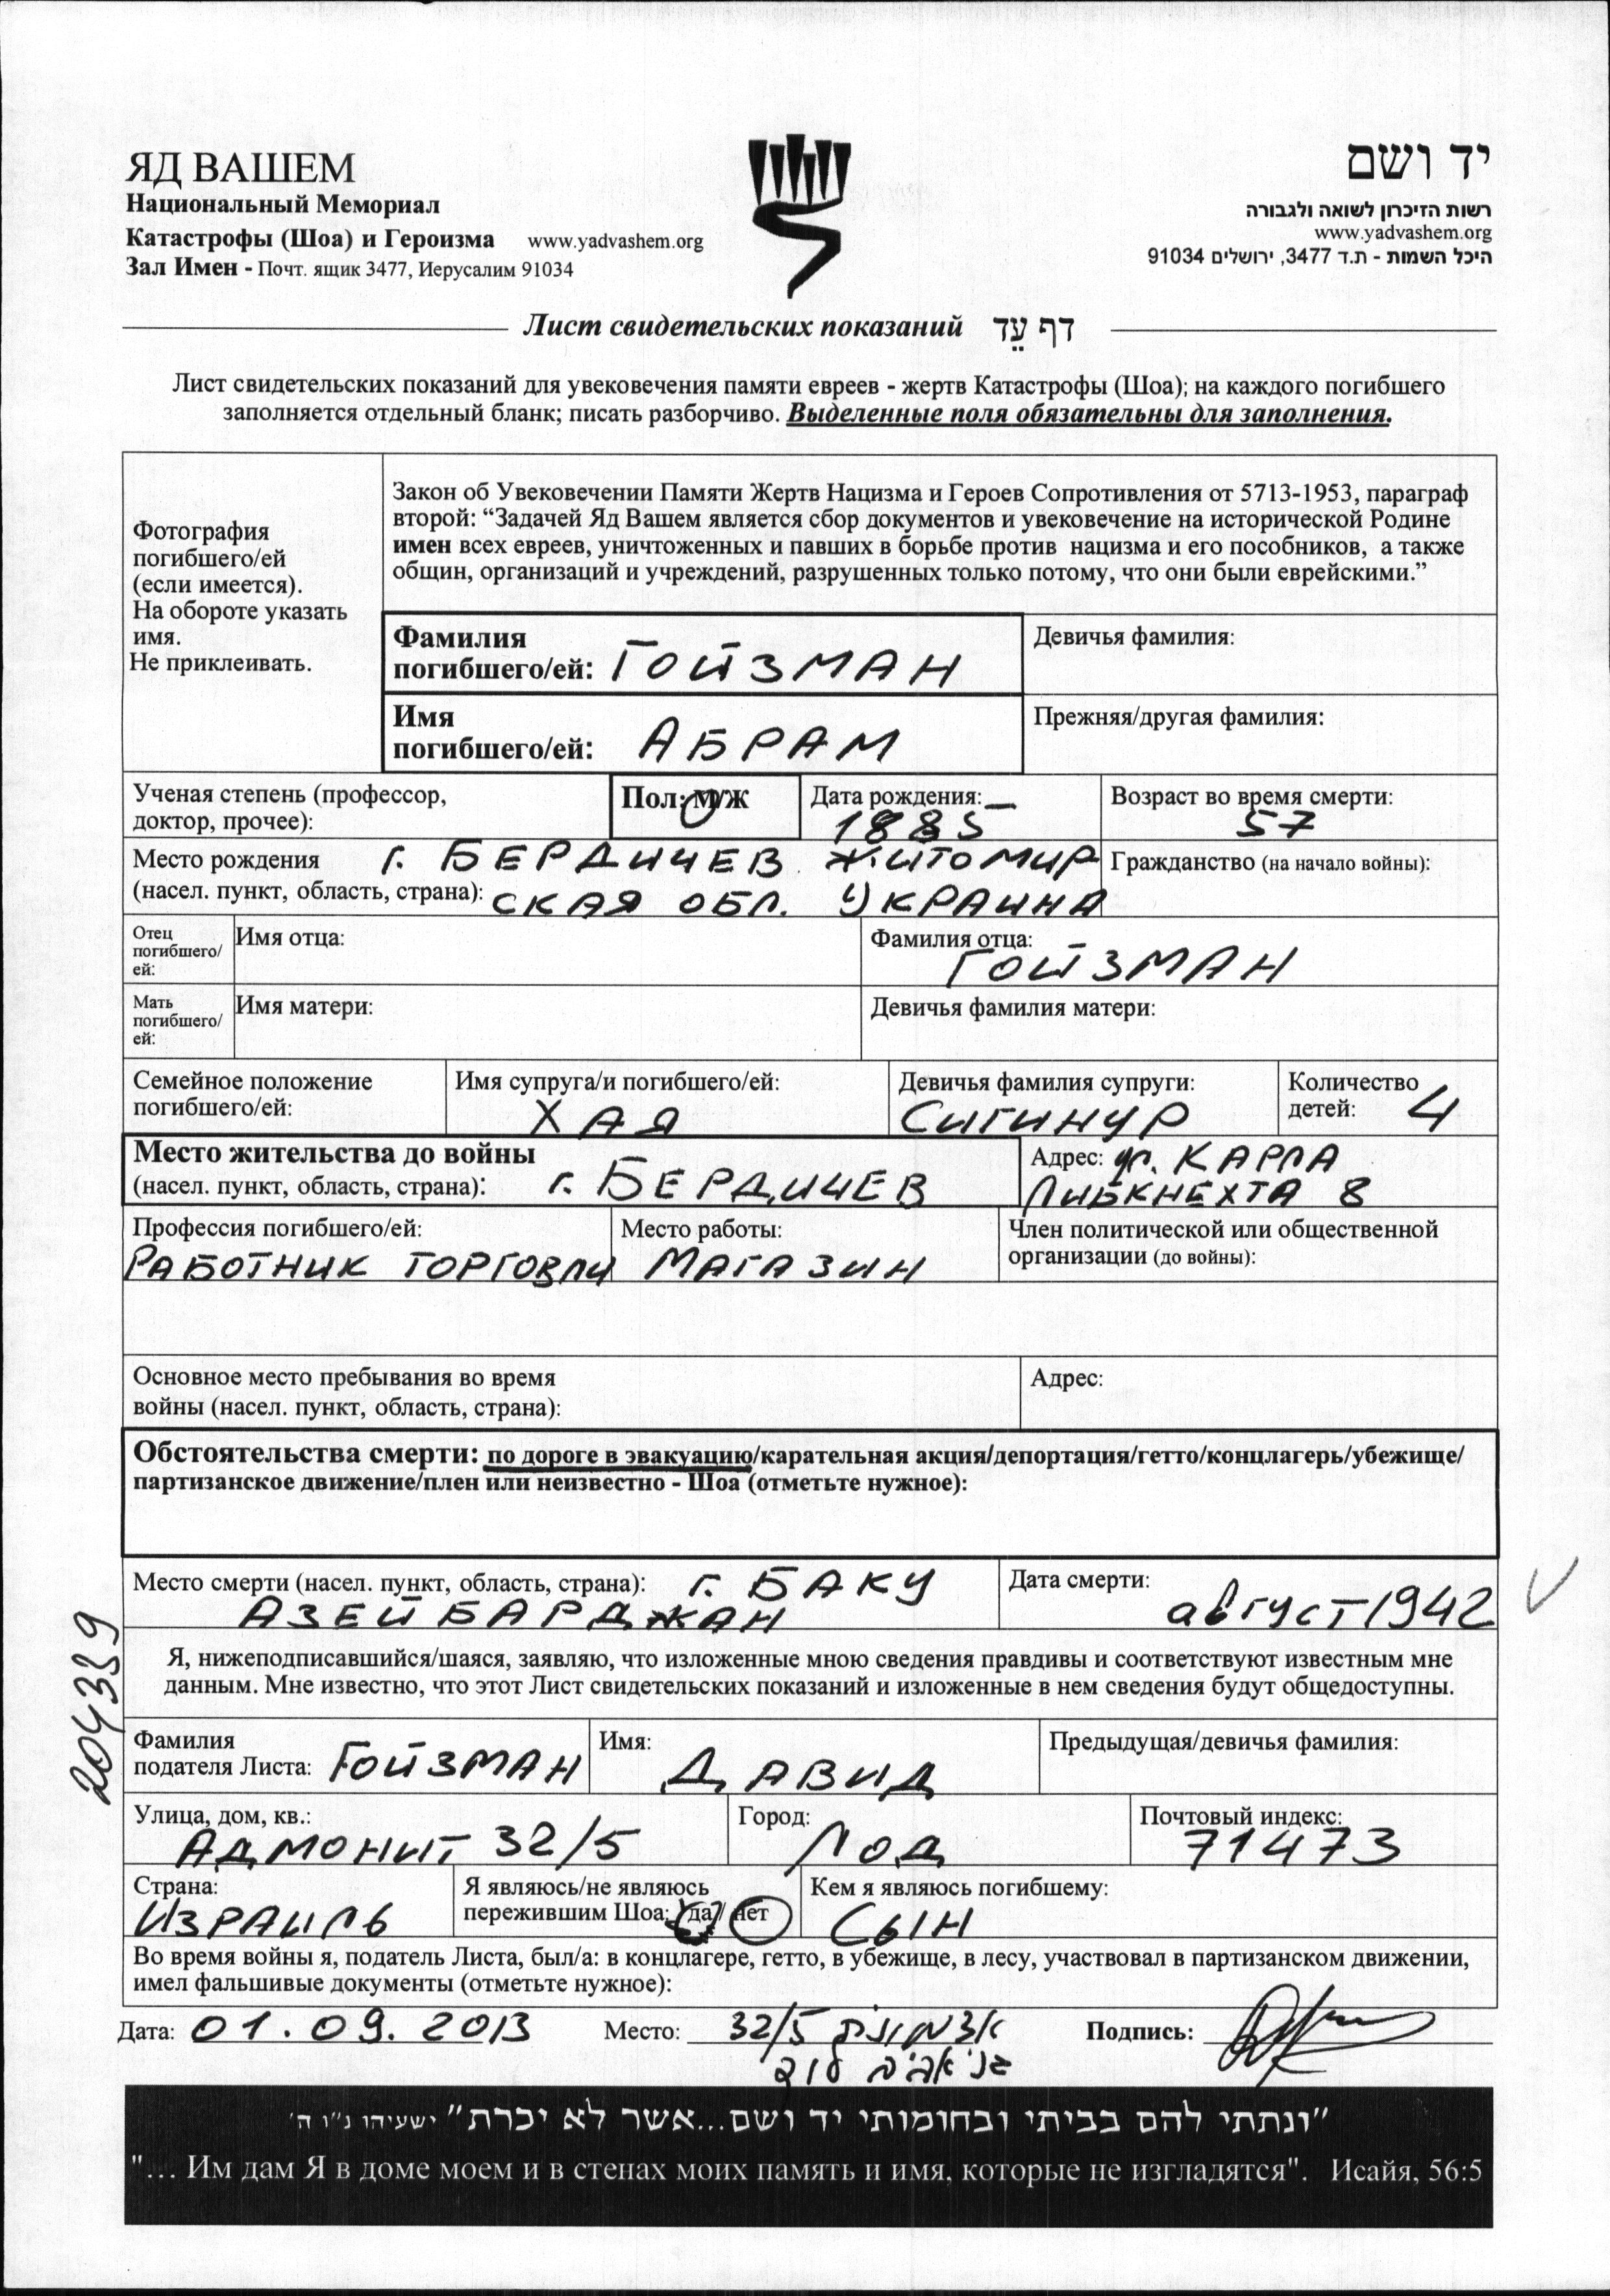 ЯД ВАШЕМ
Национальный Мемориал
Катастрофы (Шоа) и Героизма www.yadvashem.org
Зал Имен - Почт. ящик 3477, Иерусалим 91034
יד ושם
רשות הזיכרון לשואה ולגבורה
www.yadvashem.org
היכל השמות - ת.ד 3477, ירושלים 91034
Лист свидетельских показаний דף עֵד
Лист свидетельских показаний для увековечения памяти евреев - жертв Катастрофы (Шоа); на каждого погибшего
заполняется отдельный бланк; писать разборчиво. Выделенные поля обязательны для заполнения.
Фотография
погибшего/ей
(если имеется).
На обороте указать
имя.
Не приклеивать.
Закон об Увековечении Памяти Жертв Нацизма и Героев Сопротивления от 5713-1953, параграф
второй: “Задачей Яд Вашем является сбор документов и увековечение на исторической Родине
имен всех евреев, уничтоженных и павших в борьбе против нацизма и его пособников, а также
общин, организаций и учреждений, разрушенных только потому, что они были еврейскими.”
Фамилия
погибшего/ей: ГОЙЗМАН
Девичья фамилия:
Имя
погибшего/ей: АБРАМ
Прежняя/другая фамилия:
Ученая степень (профессор,
доктор, прочее):
Пол: М/Ж
Дата рождения:
1885
Возраст во время смерти:
57
Место рождения г. БЕРДИЧЕВ ЖИТОМИР
(насел. пункт, область, страна): СКАЯ ОБЛ. УКРАИНА
Гражданство (на начало войны):
Отец
погибшего/
ей:
Имя отца:
Фамилия отца:
ГОЙЗМАН
Мать
погибшего/
ей:
Имя матери:
Девичья фамилия матери:
Семейное положение
погибшего/ей:
Имя супруга/и погибшего/ей:
ХАЯ
Девичья фамилия супруги:
СИГИНУР
Количество
детей: 4
Место жительства до войны
(насел. пункт, область, страна): г. БЕРДИЧЕВ
Адрес: ул. КАРЛА
ЛИБКНЕХТА 8
Профессия погибшего/ей:
РАБОТНИК ТОРГОВЛИ
Место работы:
МАГАЗИН
Член политической или общественной
организации (до войны):
Основное место пребывания во время
войны (насел. пункт, область, страна):
Адрес:
Обстоятельства смерти: по дороге в эвакуацию/карательная акция/депортация/гетто/концлагерь/убежище/
партизанское движение/плен или неизвестно - Шоа (отметьте нужное):
Место смерти (насел. пункт, область, страна): г. БАКУ
АЗЕЙБАРДЖАН
Дата смерти:
август 1942
204339
Я, нижеподписавшийся/шаяся, заявляю, что изложенные мною сведения правдивы и соответствуют известным мне
данным. Мне известно, что этот Лист свидетельских показаний и изложенные в нем сведения будут общедоступны.
Фамилия
подателя Листа: ГОЙЗМАН
Имя:
ДАВИД
Предыдущая/девичья фамилия:
Улица, дом, кв.:
АДМОНИТ 32/5
Город:
ЛОД
Почтовый индекс:
71473
Страна:
ИЗРАИЛЬ
Я являюсь/не являюсь
пережившим Шоа: да / нет
Кем я являюсь погибшему:
СЫН
Во время войны я, податель Листа, был/а: в концлагере, гетто, в убежище, в лесу, участвовал в партизанском движении,
имел фальшивые документы (отметьте нужное):
Дата: 01.09.2013 Место: אדמונית 32/5 Подпись:
גני אביב לוד
"ונתתי להם בביתי ובחומותי יד ושם...אשר לא יכרת" ישעיהו נ"ו ה'
"... Им дам Я в доме моем и в стенах моих память и имя, которые не изгладятся". Исайя, 56:5